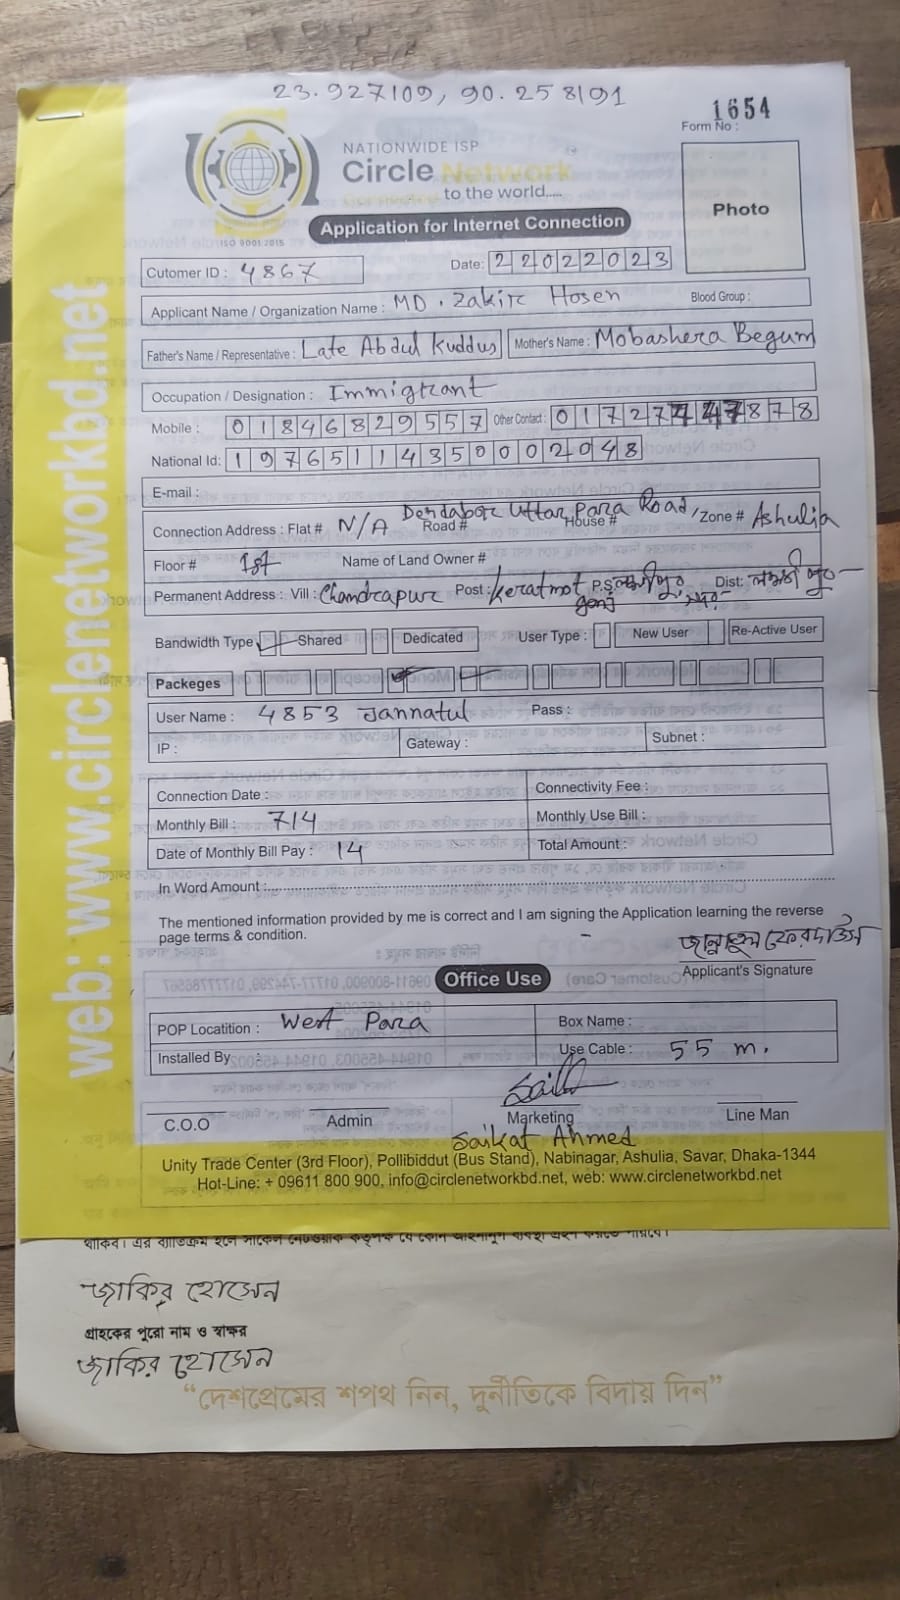 23.927109, 90.258191
1654
Form No :
NATIONWIDE ISP
Circle Network
to the world....
Photo
Application for Internet Connection
ISO 9001:2015
Cutomer ID : 4867 Date: 22022023
Applicant Name / Organization Name : MD. Zakir Hosen Blood Group :
Father's Name / Representative : Late Abdul Kuddus Mother's Name : Mobashera Begum
Occupation / Designation : Immigrant
Mobile : 01846829557 Other Contact : 01727 7878
National Id: 19765114350002048
E-mail :
Connection Address : Flat # N/A Road # House # Dendabor Uttar Para Road, Zone # Ashulia
Floor # 1st Name of Land Owner #
Permanent Address : Vill : Chandrapur Post : Keratmot P.S: Dist:
gonj
Bandwidth Type Shared Dedicated User Type : New User Re-Active User
Packeges
User Name : 4853 Jannatul Pass :
IP : Gateway : Subnet :
Connection Date : Connectivity Fee :
Monthly Bill : 714 Monthly Use Bill :
Date of Monthly Bill Pay : 14 Total Amount :
In Word Amount :
The mentioned information provided by me is correct and I am signing the Application learning the reverse
page terms & condition.
জান্নাতুল ফেরদাউস
Applicant's Signature
Office Use
POP Locatition : West Para Box Name :
Installed By : Use Cable : 55 m.
C.O.O Admin Marketing Line Man
Saikat Ahmed
Unity Trade Center (3rd Floor), Pollibiddut (Bus Stand), Nabinagar, Ashulia, Savar, Dhaka-1344
Hot-Line: + 09611 800 900, info@circlenetworkbd.net, web: www.circlenetworkbd.net
web: www.circlenetworkbd.net
জাকির হোসেন
গ্রাহকের পুরো নাম ও স্বাক্ষর
জাকির হোসেন
“দেশপ্রেমের শপথ নিন, দুর্নীতিকে বিদায় দিন”